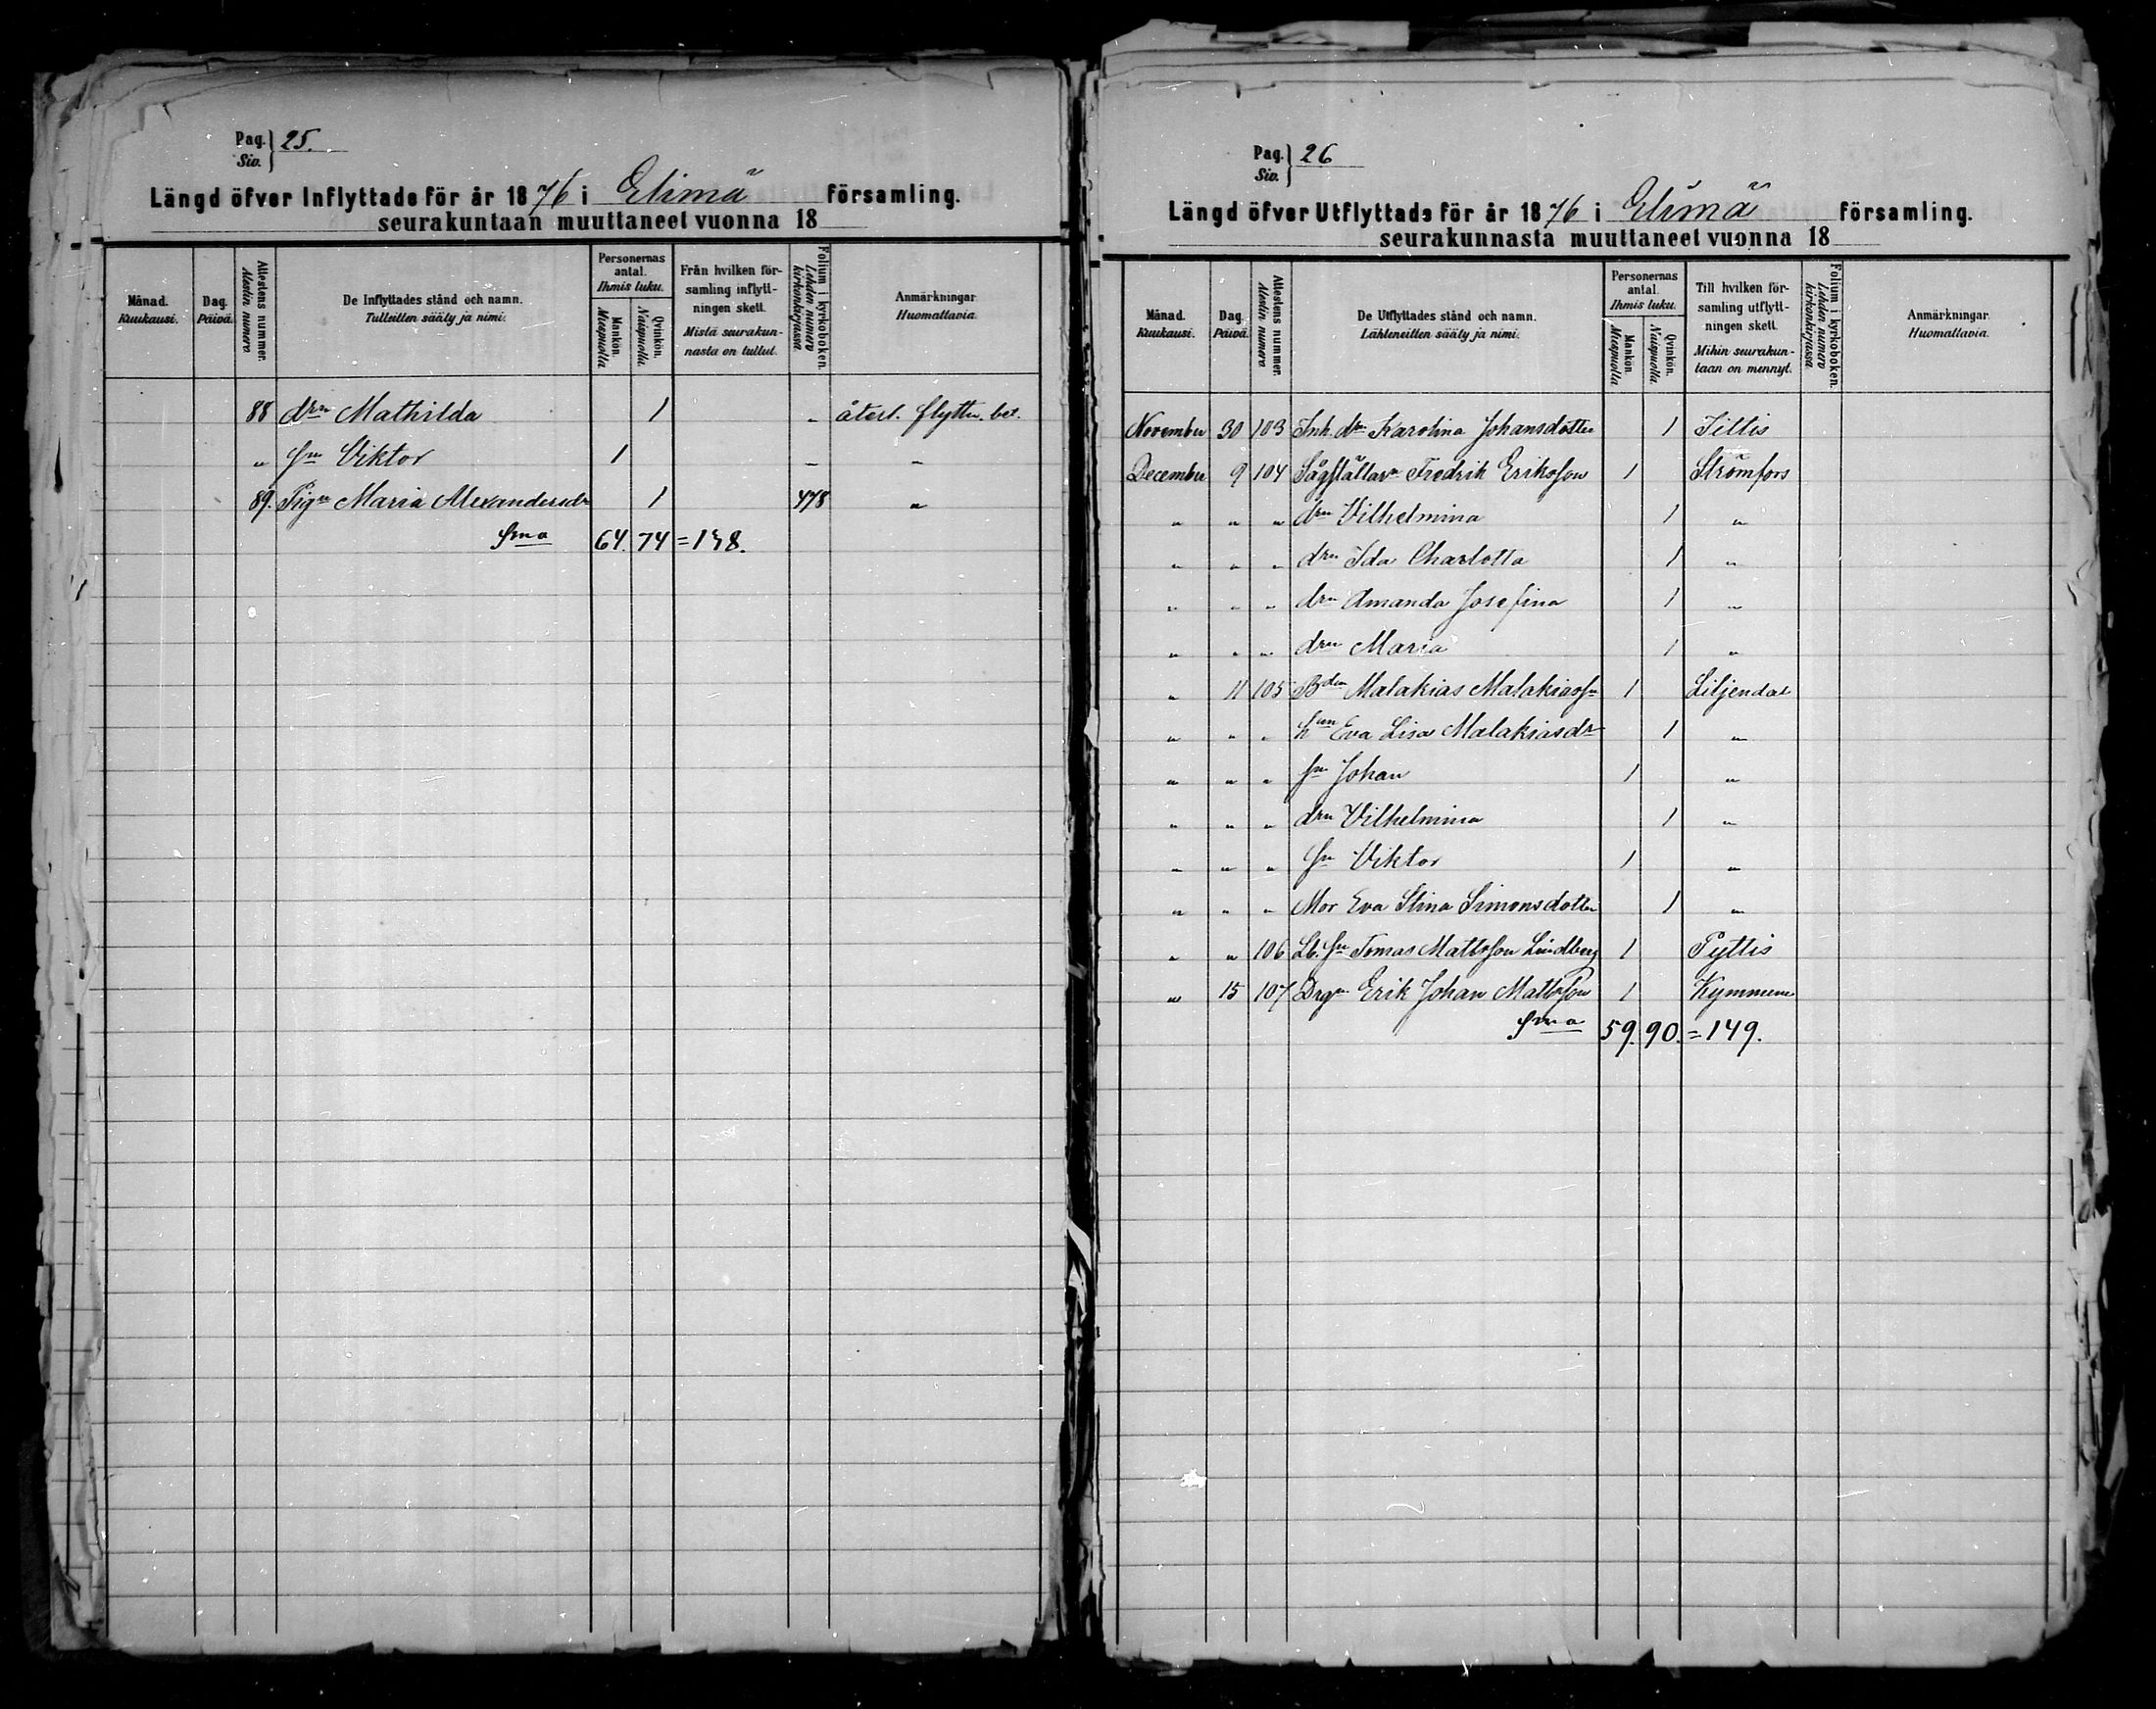 Pag. Siv. 25.
Längd öfver Inflyttade för år 1876 i Elimä församling.
seurakuntaan muuttaneet vuonna 18
Månad. Kuukausi.
Dag. Päivä.
Attestens nummer. Atestin numero
De Inflyttades stånd och namn. Tulleitten sääty ja nimi.
Personernas antal. Ihmis luku.
Mankön. Miespuolia
Qvinkön. Naispuolia.
Från hvilken församling inflyttningen skett. Mistä seurakunnasta on tullut.
Folium i kyrkoboken. Lehden numero kirkonkirjassa
Anmärkningar. Huomattavia.
88 drn Mathilda 1 „ återl. flyttn. bet.
„ sn Viktor 1 „ „
89. Pign Maria Alexandersdr 1 478 „
Sma 64. 74 = 138.
Pag. Siv. 26
Längd öfver Utflyttade för år 1876 i Elimä församling.
seurakunnasta muuttaneet vuonna 18
Månad. Kuukausi.
Dag. Päivä.
Attestens nummer. Atestin numero
De Utflyttades stånd och namn. Lähteneitten sääty ja nimi.
Personernas antal. Ihmis luku.
Mankön. Miespuolia
Qvinkön. Naispuolia.
Till hvilken församling utflyttningen skett. Mihin seurakuntaan on mennyt.
Folium i kyrkoboken. Lehden numero kirkonkirjassa
Anmärkningar. Huomattavia.
November 30 103 Inh. drn Karolina Johansdotter 1 Iittis
December 9 104 Sågställarn Fredrik Eriksson 1 Strömfors
„ „ „ drn Vilhelmina 1 „
„ „ „ drn Ida Charlotta 1 „
„ „ „ drn Amanda Josefina 1 „
„ „ „ drn Maria 1 „
„ 11 105 Bden Malakias Malakiassn 1 Liljendal
„ „ „ hun Eva Lisa Malakiasdr 1 „
„ „ „ sn Johan 1 „
„ „ „ drn Vilhelmina 1 „
„ „ „ sn Viktor 1 „
„ „ „ Mor Eva Stina Simonsdotter 1 „
„ „ 106 Lb. sn Tomas Mattsson Lindberg 1 Pyttis
„ 15 107 Drgn Erik Johan Mattsson 1 Kymmene
Sma 59. 90. = 149.